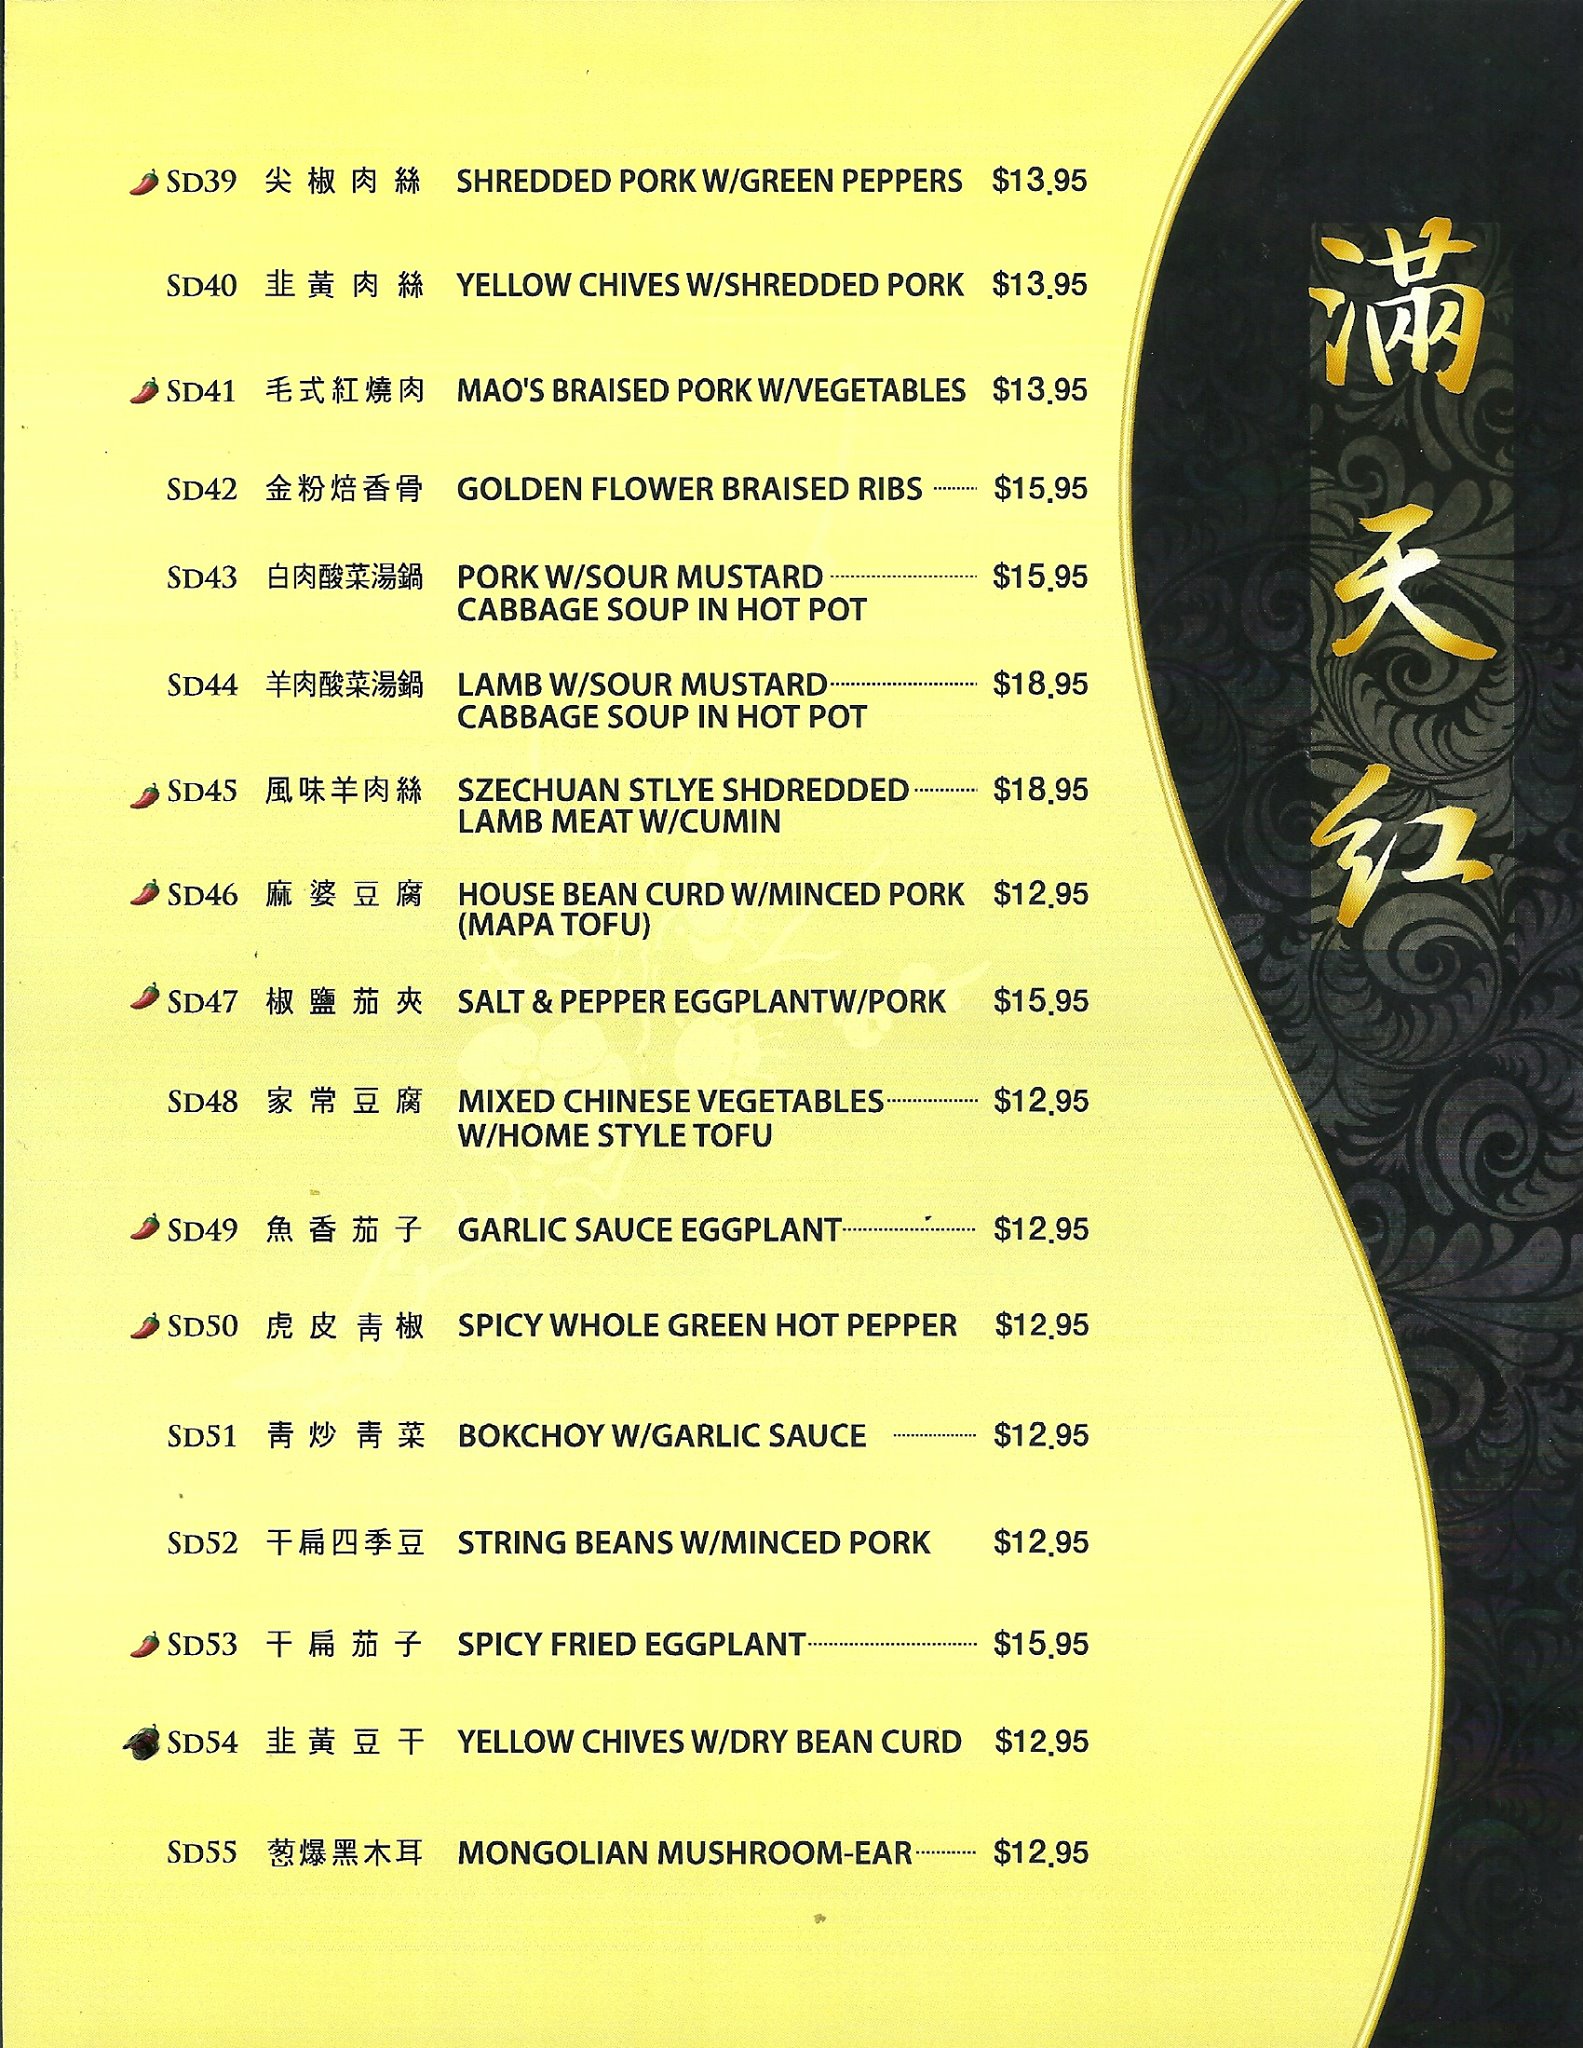 SD39 尖椒肉絲 SHREDDED PORK W/GREEN PEPPERS $13.95
SD40 韭黃肉絲 YELLOW CHIVES W/SHREDDED PORK $13.95
SD41 毛式紅燒肉 MAO'S BRAISED PORK W/VEGETABLES $13.95
SD42 金粉焙香骨 GOLDEN FLOWER BRAISED RIBS $15.95
SD43 白肉酸菜湯鍋 PORK W/SOUR MUSTARD $15.95
CABBAGE SOUP IN HOT POT
SD44 羊肉酸菜湯鍋 LAMB W/SOUR MUSTARD $18.95
CABBAGE SOUP IN HOT POT
SD45 風味羊肉絲 SZECHUAN STLYE SHDREDDED $18.95
LAMB MEAT W/CUMIN
SD46 麻婆豆腐 HOUSE BEAN CURD W/MINCED PORK $12.95
(MAPA TOFU)
SD47 椒鹽茄夾 SALT & PEPPER EGGPLANTW/PORK $15.95
SD48 家常豆腐 MIXED CHINESE VEGETABLES $12.95
W/HOME STYLE TOFU
SD49 魚香茄子 GARLIC SAUCE EGGPLANT $12.95
SD50 虎皮青椒 SPICY WHOLE GREEN HOT PEPPER $12.95
SD51 青炒青菜 BOKCHOY W/GARLIC SAUCE $12.95
SD52 干扁四季豆 STRING BEANS W/MINCED PORK $12.95
SD53 干扁茄子 SPICY FRIED EGGPLANT $15.95
SD54 韭黃豆干 YELLOW CHIVES W/DRY BEAN CURD $12.95
SD55 葱爆黑木耳 MONGOLIAN MUSHROOM-EAR $12.95
滿天红